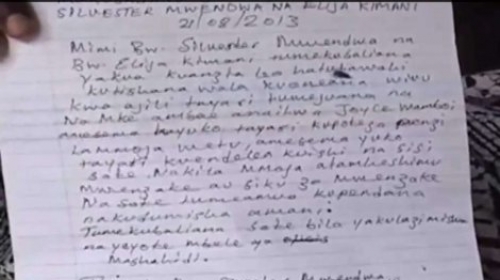 SILVESTER MWENDWA NA ELIJA KIMANI
21/08/2013
Mimi Bw. Silvester Mwendwa na
Bw. Elija Kimani, tumekubaliana
yakua kuanzia leo hatutawahi
kutishana wala kuoneana wivu
kwa ajili tayari tumejuana na
Na Mke ambae anaitwa Joyce Wambui
amesema hayuko tayari kupoteza penzi
la mmoja wetu, amesema yuko
tayari kuendelea kuishi na sisi
sote. Nakila mmoja atamheshimu
mwenzake au siku za mwenzake
Na sote tumeamua kupendana
nakudumisha amani.
Tumekubaliana sote bila yakulazimishwa
na yeyote mbele ya
Mashahidi.
Mwendwa